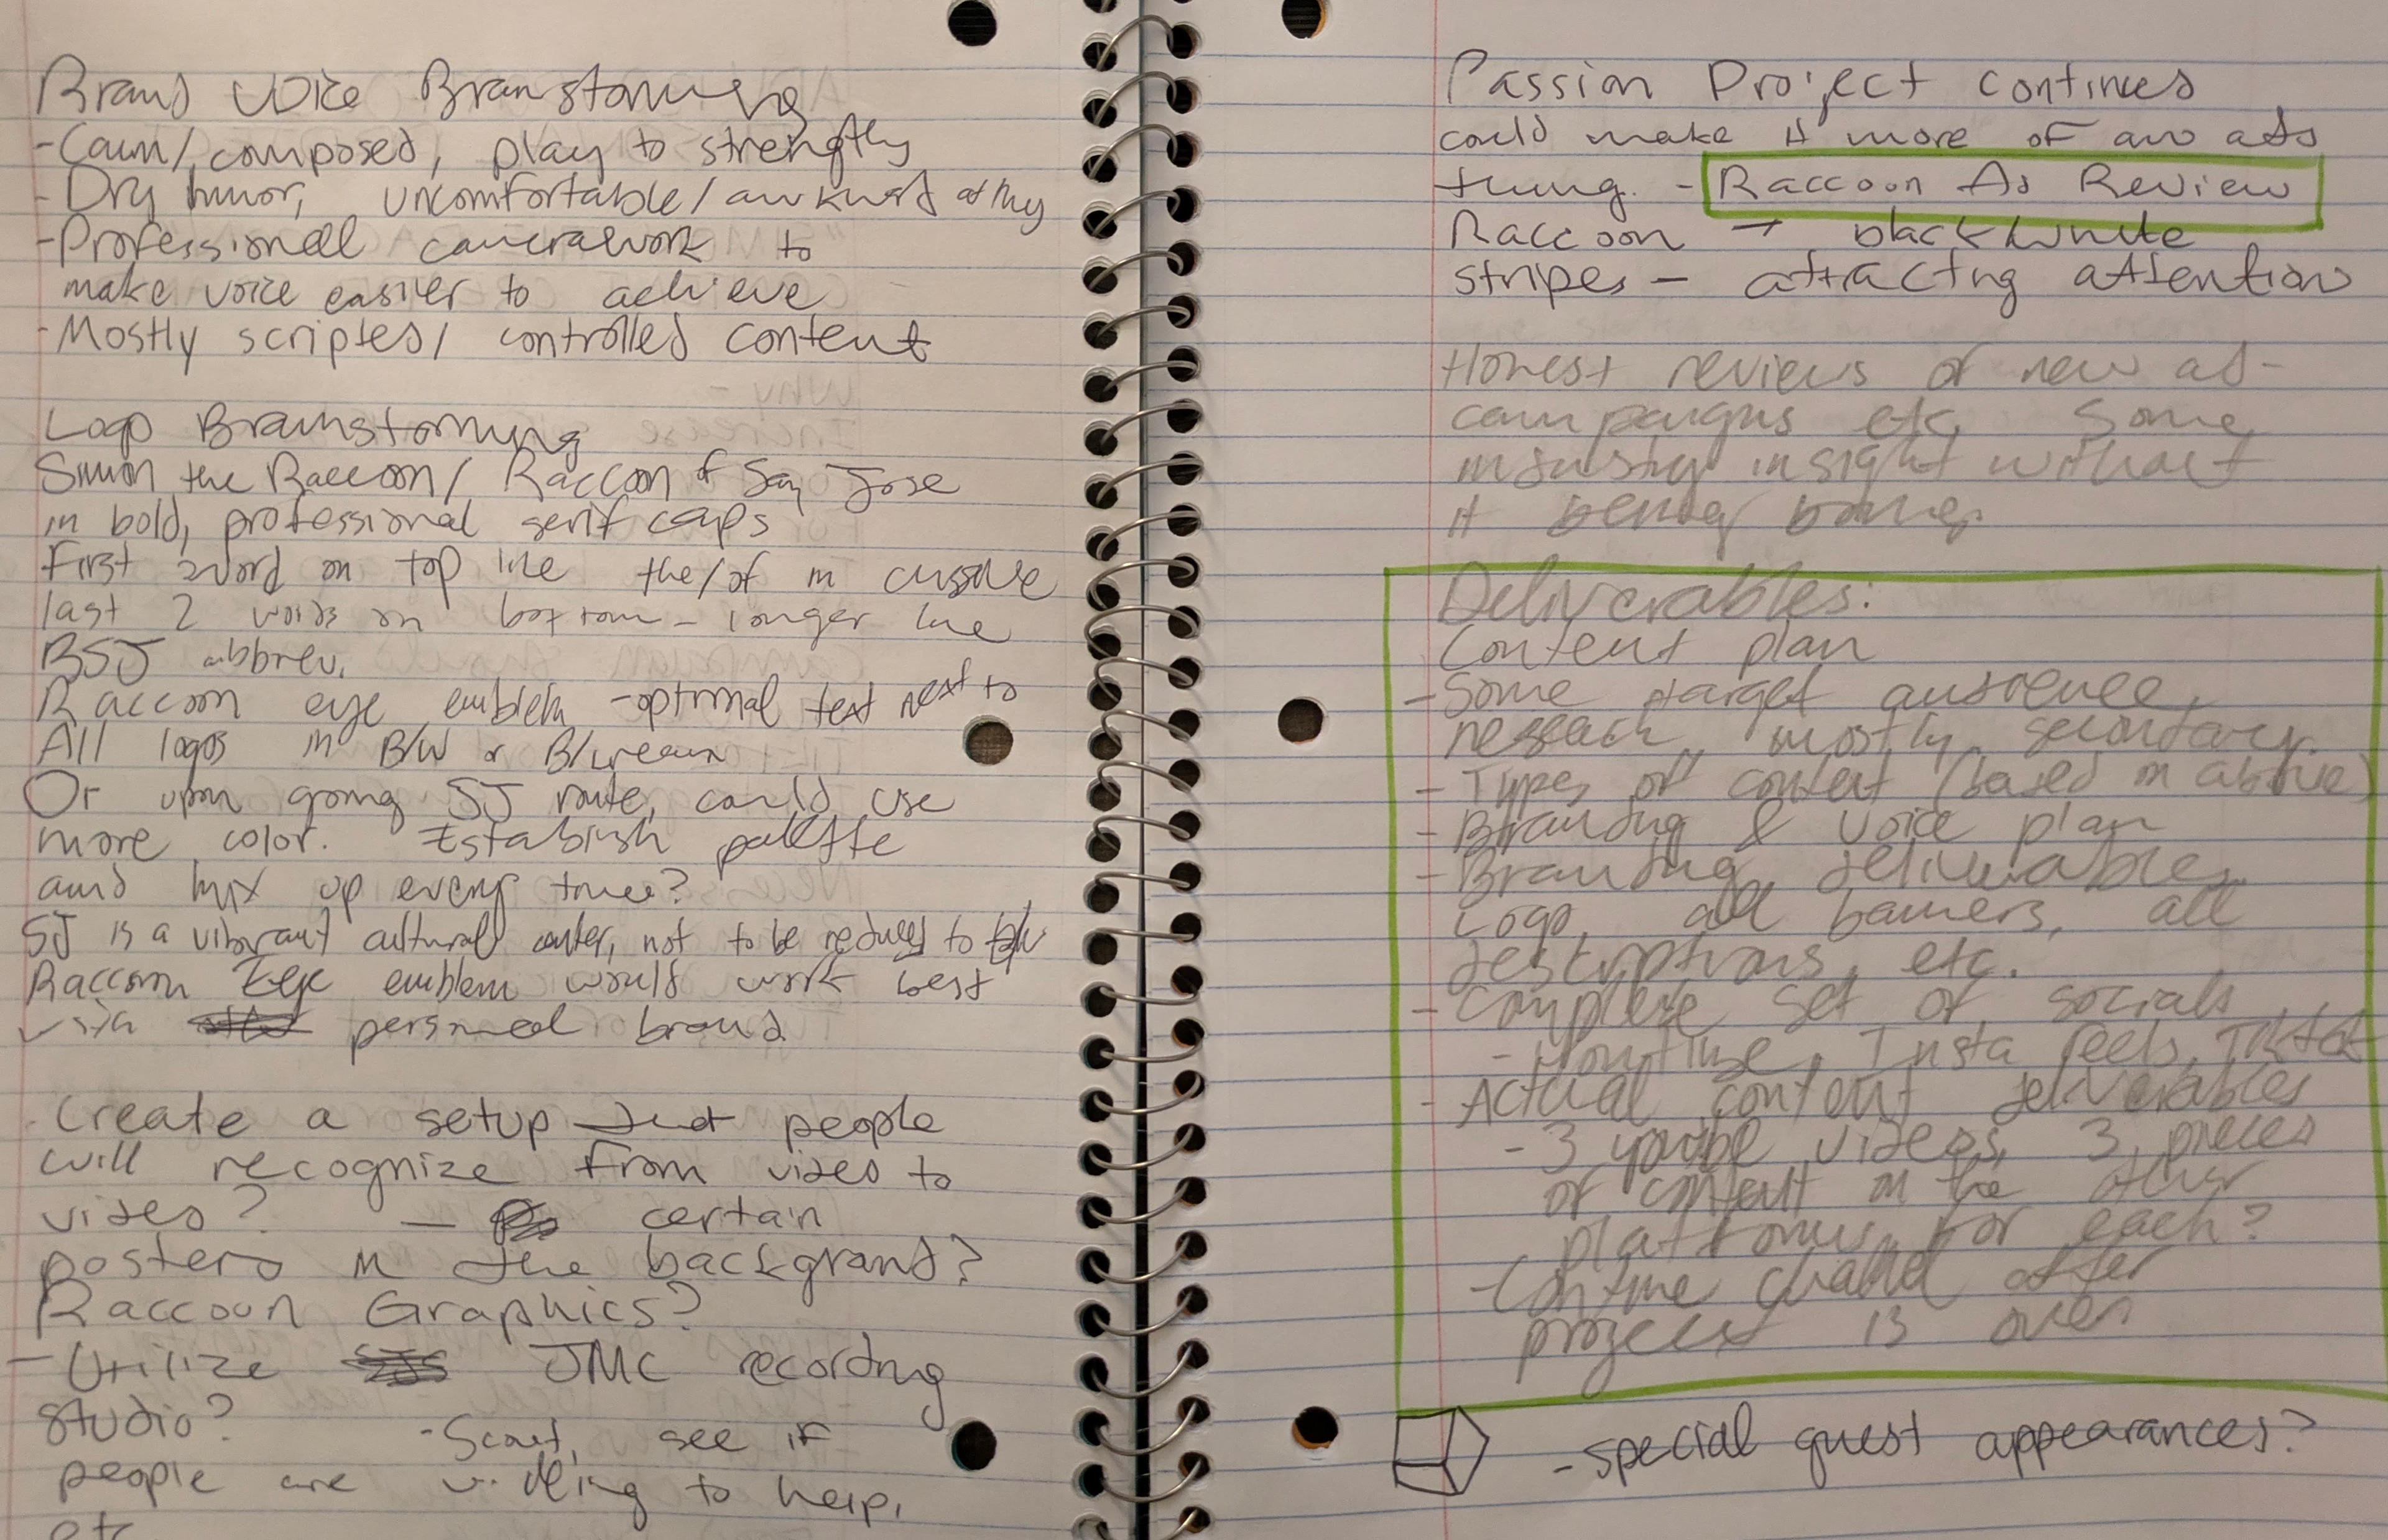 Brand voice Brainstorming
-Calm/composed, play to strengths
-Dry humor, uncomfortable/awkward at my
-Professional camerawork to
make voice easier to achieve
-Mostly scripted/ controlled content
Logo Brainstorming
Simon the Raccoon/ Raccoon of San Jose
in bold, professional serif caps
First word on top line the/of in cursive
last 2 words on bottom - longer line
BSJ abbrev.
Raccoon eye emblem -optional text next to
All logos in B/W or B/cream
Or upon going SJ route, could use
more color. Establish palette
and mix up every time?
SJ is a vibrant cultural center, not to be reduced to
Raccoon Eye emblem would work best
via personal brand
Create a setup that people
will recognize from video to
video? - certain
posters in the background?
Raccoon Graphics?
- Utilize JMC recording
studio? - Scout, see if
people are willing to help,
etc.
Passion Project continued
could make it more of an ads
thing. - Raccoon Ad Review
Raccoon → black/white
stripes - attracting attention
Honest reviews of new ad-
campaigns etc. Some
industry insight without
it being boring.
Deliverables:
Content plan
-Some target audience
research, mostly secondary.
- Types of content (based on above)
- Branding & voice plan
- Branding deliverables
Logo, all banners, all
descriptions, etc.
- Complete set of socials
- Youtube, Insta reels, TikTok
- Actual content deliverables
- 3 youtube videos, 3 pieces
of content on the other
platforms for each?
- Continue channel after
project is over
- special guest appearances?